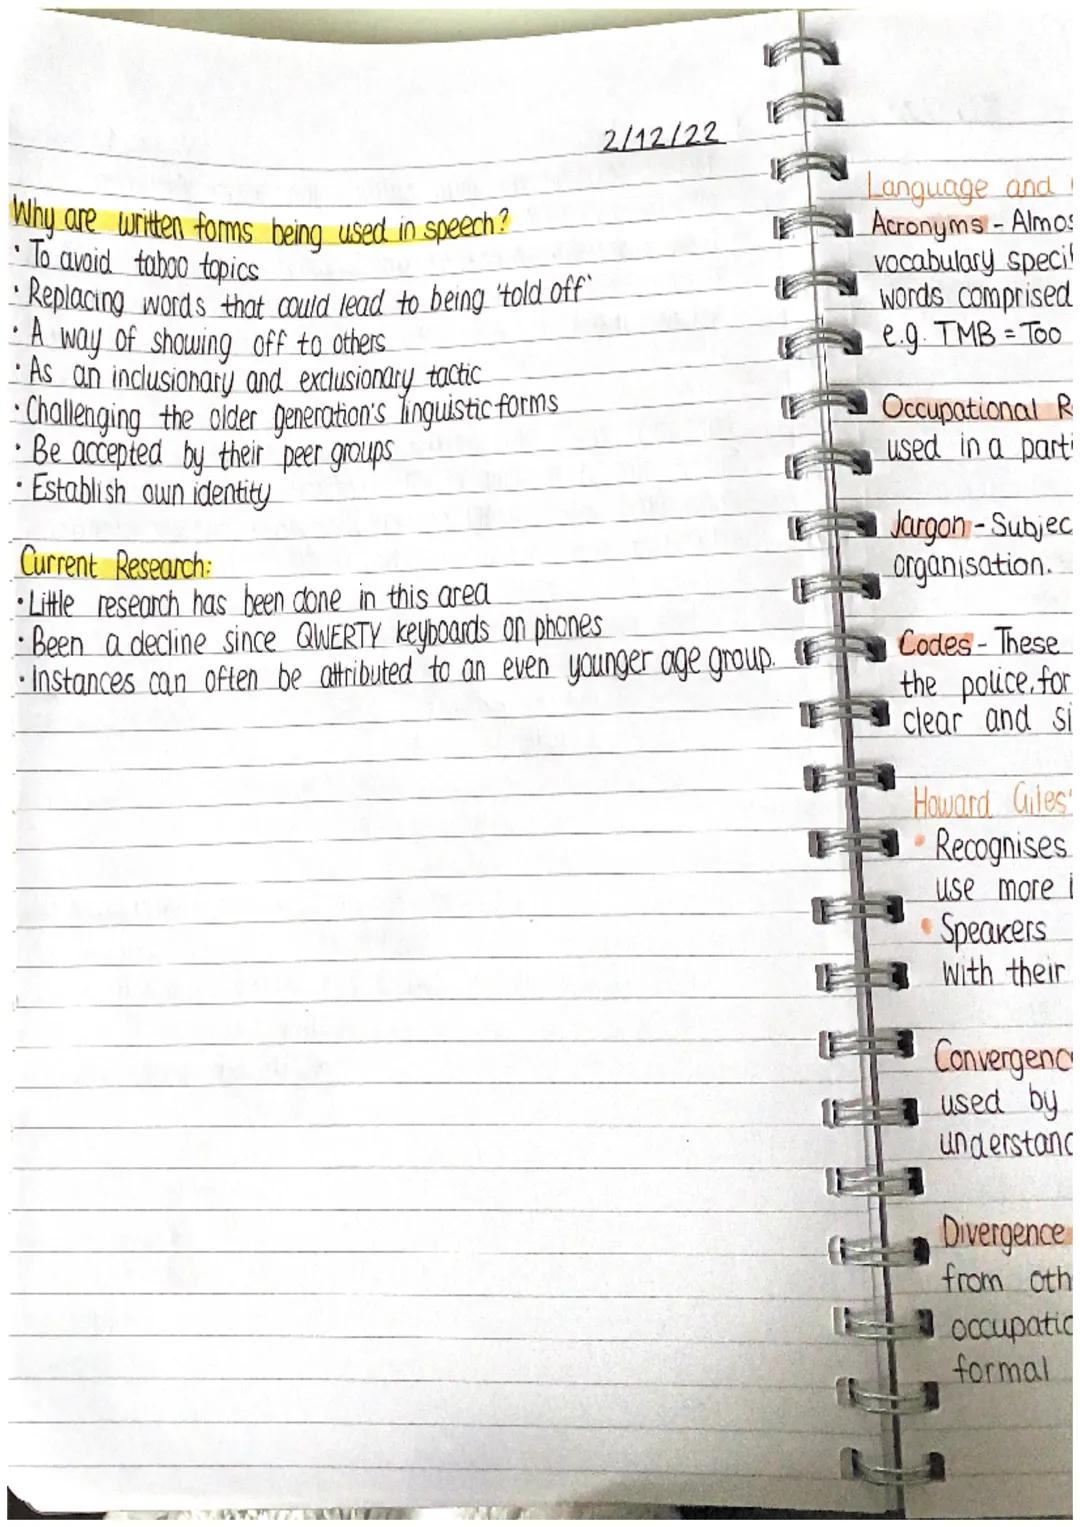 2/12/22
Why are written forms being used in speech?
• To avoid taboo topics
• Replacing words that could lead to being 'told off'
• A way of showing off to others
• As an inclusionary and exclusionary tactic
• Challenging the older generation's linguistic forms
• Be accepted by their peer groups
• Establish own identity
Current Research:
• Little research has been done in this area
• Been a decline since QWERTY keyboards on phones
• Instances can often be attributed to an even younger age group.
Language and
Acronyms - Almos
vocabulary specif
words comprised
e.g. TMB = Too
Occupational R
used in a parti
Jargon - Subjec
organisation.
Codes - These
the police, for
clear and si
Howard Giles'
• Recognises
use more i
• Speakers
with their
Convergenc
used by
understand
Divergence
from oth
occupatio
formal